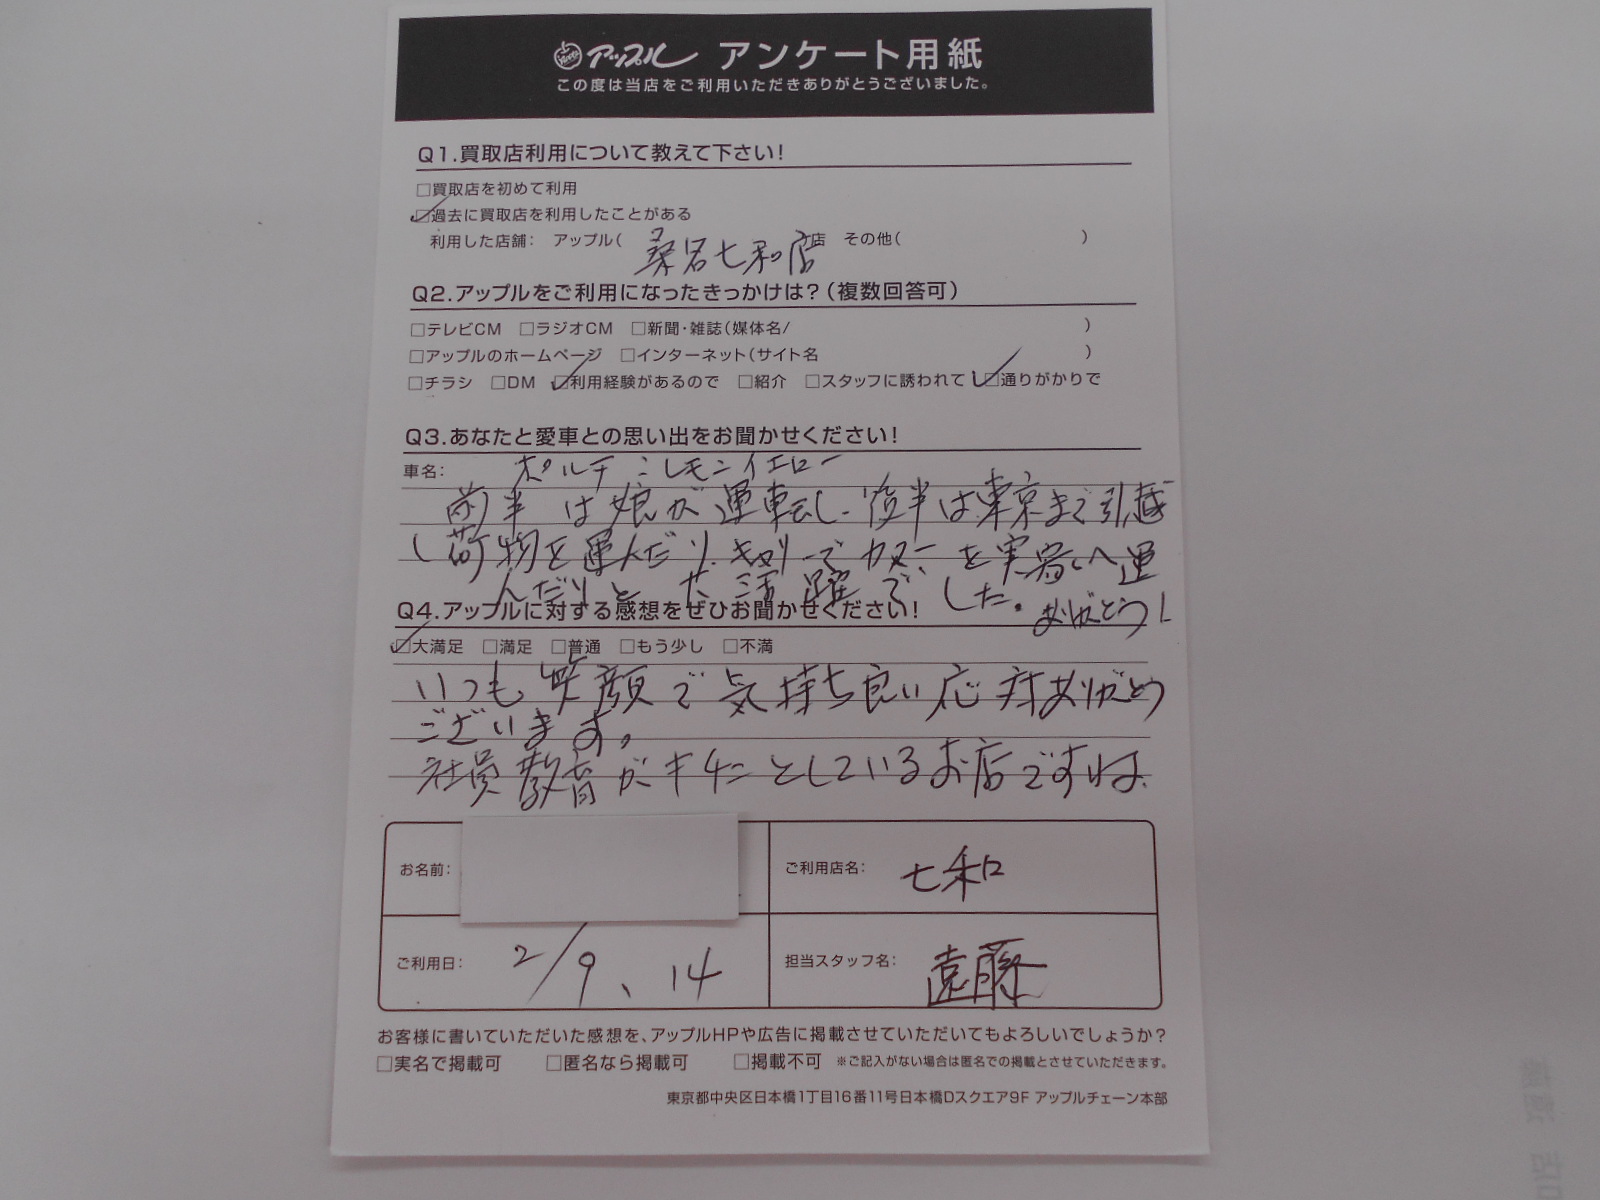 アップル アンケート用紙
この度は当店をご利用いただきありがとうございました。
Q1.買取店利用について教えて下さい!
□買取店を初めて利用
☑過去に買取店を利用したことがある
利用した店舗: アップル( 桑名七和店 店 その他( )
Q2.アップルをご利用になったきっかけは?(複数回答可)
□テレビCM □ラジオCM □新聞・雑誌(媒体名/ )
□アップルのホームページ □インターネット(サイト名 )
□チラシ □DM ☑利用経験があるので □紹介 □スタッフに誘われて ☑通りがかりで
Q3.あなたと愛車との思い出をお聞かせください!
車名: ポルテ レモンイエロー
前半は娘が運転し、後半は東京まで引越
し荷物を運んだり、を実家へ運
んだりと大活躍でした。ありがとう!
Q4.アップルに対する感想をぜひお聞かせください!
☑大満足 □満足 □普通 □もう少し □不満
いつも笑顔で気持ち良い応対ありがとう
ございます。
社員教育がキチンとしているお店ですね。
お名前:
ご利用店名: 七和
ご利用日: 2/9、14
担当スタッフ名: 遠藤
お客様に書いていただいた感想を、アップルHPや広告に掲載させていただいてもよろしいでしょうか?
□実名で掲載可 □匿名なら掲載可 □掲載不可 ※ご記入がない場合は匿名での掲載とさせていただきます。
東京都中央区日本橋1丁目16番11号日本橋Dスクエア9F アップルチェーン本部